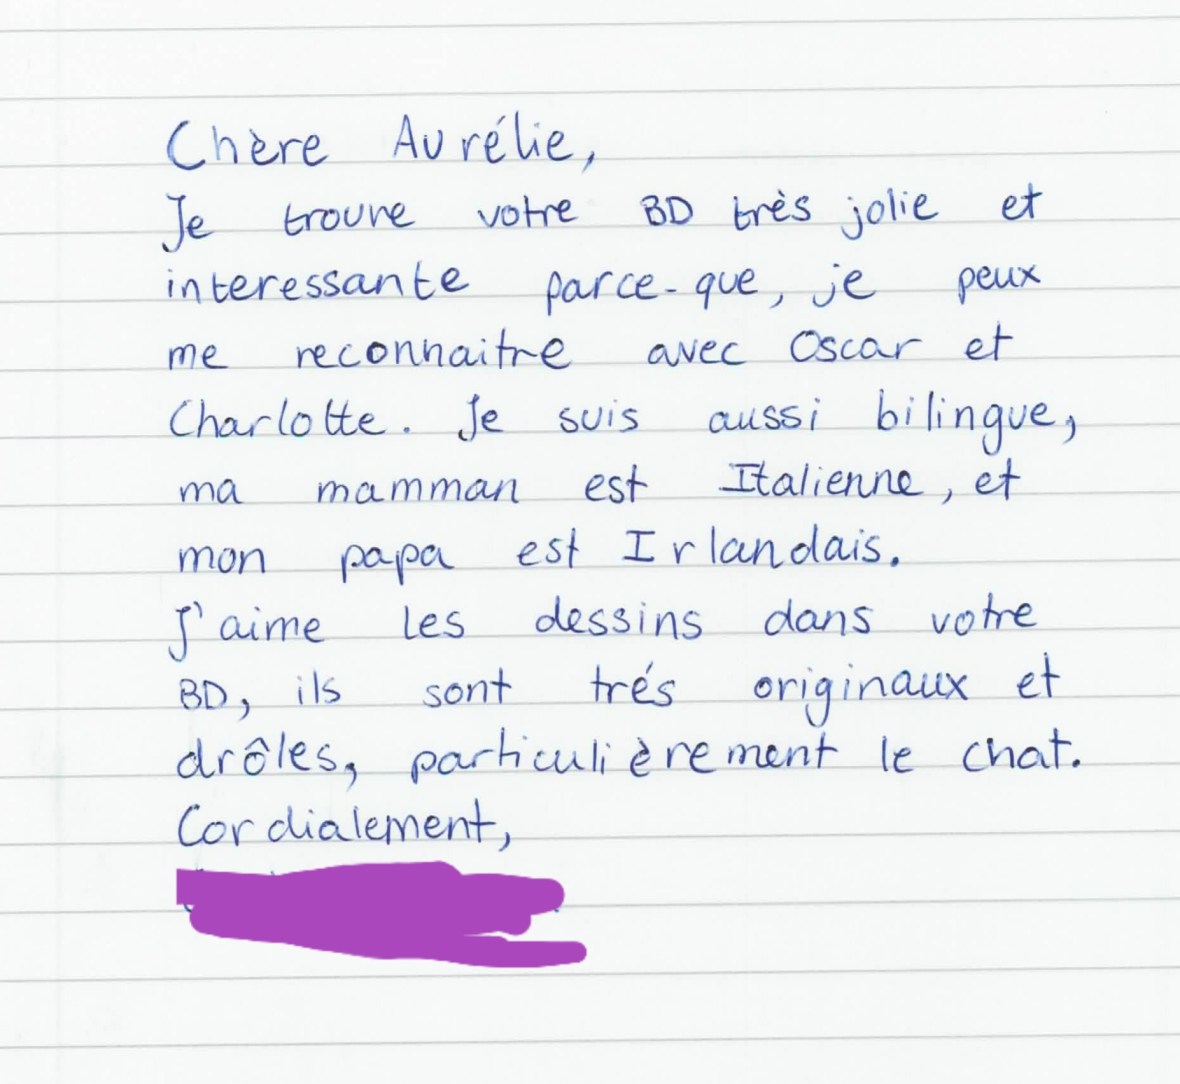 Chère Aurélie,
Je trouve votre BD très jolie et
interessante parce-que, je peux
me reconnaitre avec Oscar et
Charlotte. Je suis aussi bilingue,
ma mamman est Italienne, et
mon papa est Irlandais.
J'aime les dessins dans votre
BD, ils sont trés originaux et
drôles, particulièrement le chat.
Cordialement,